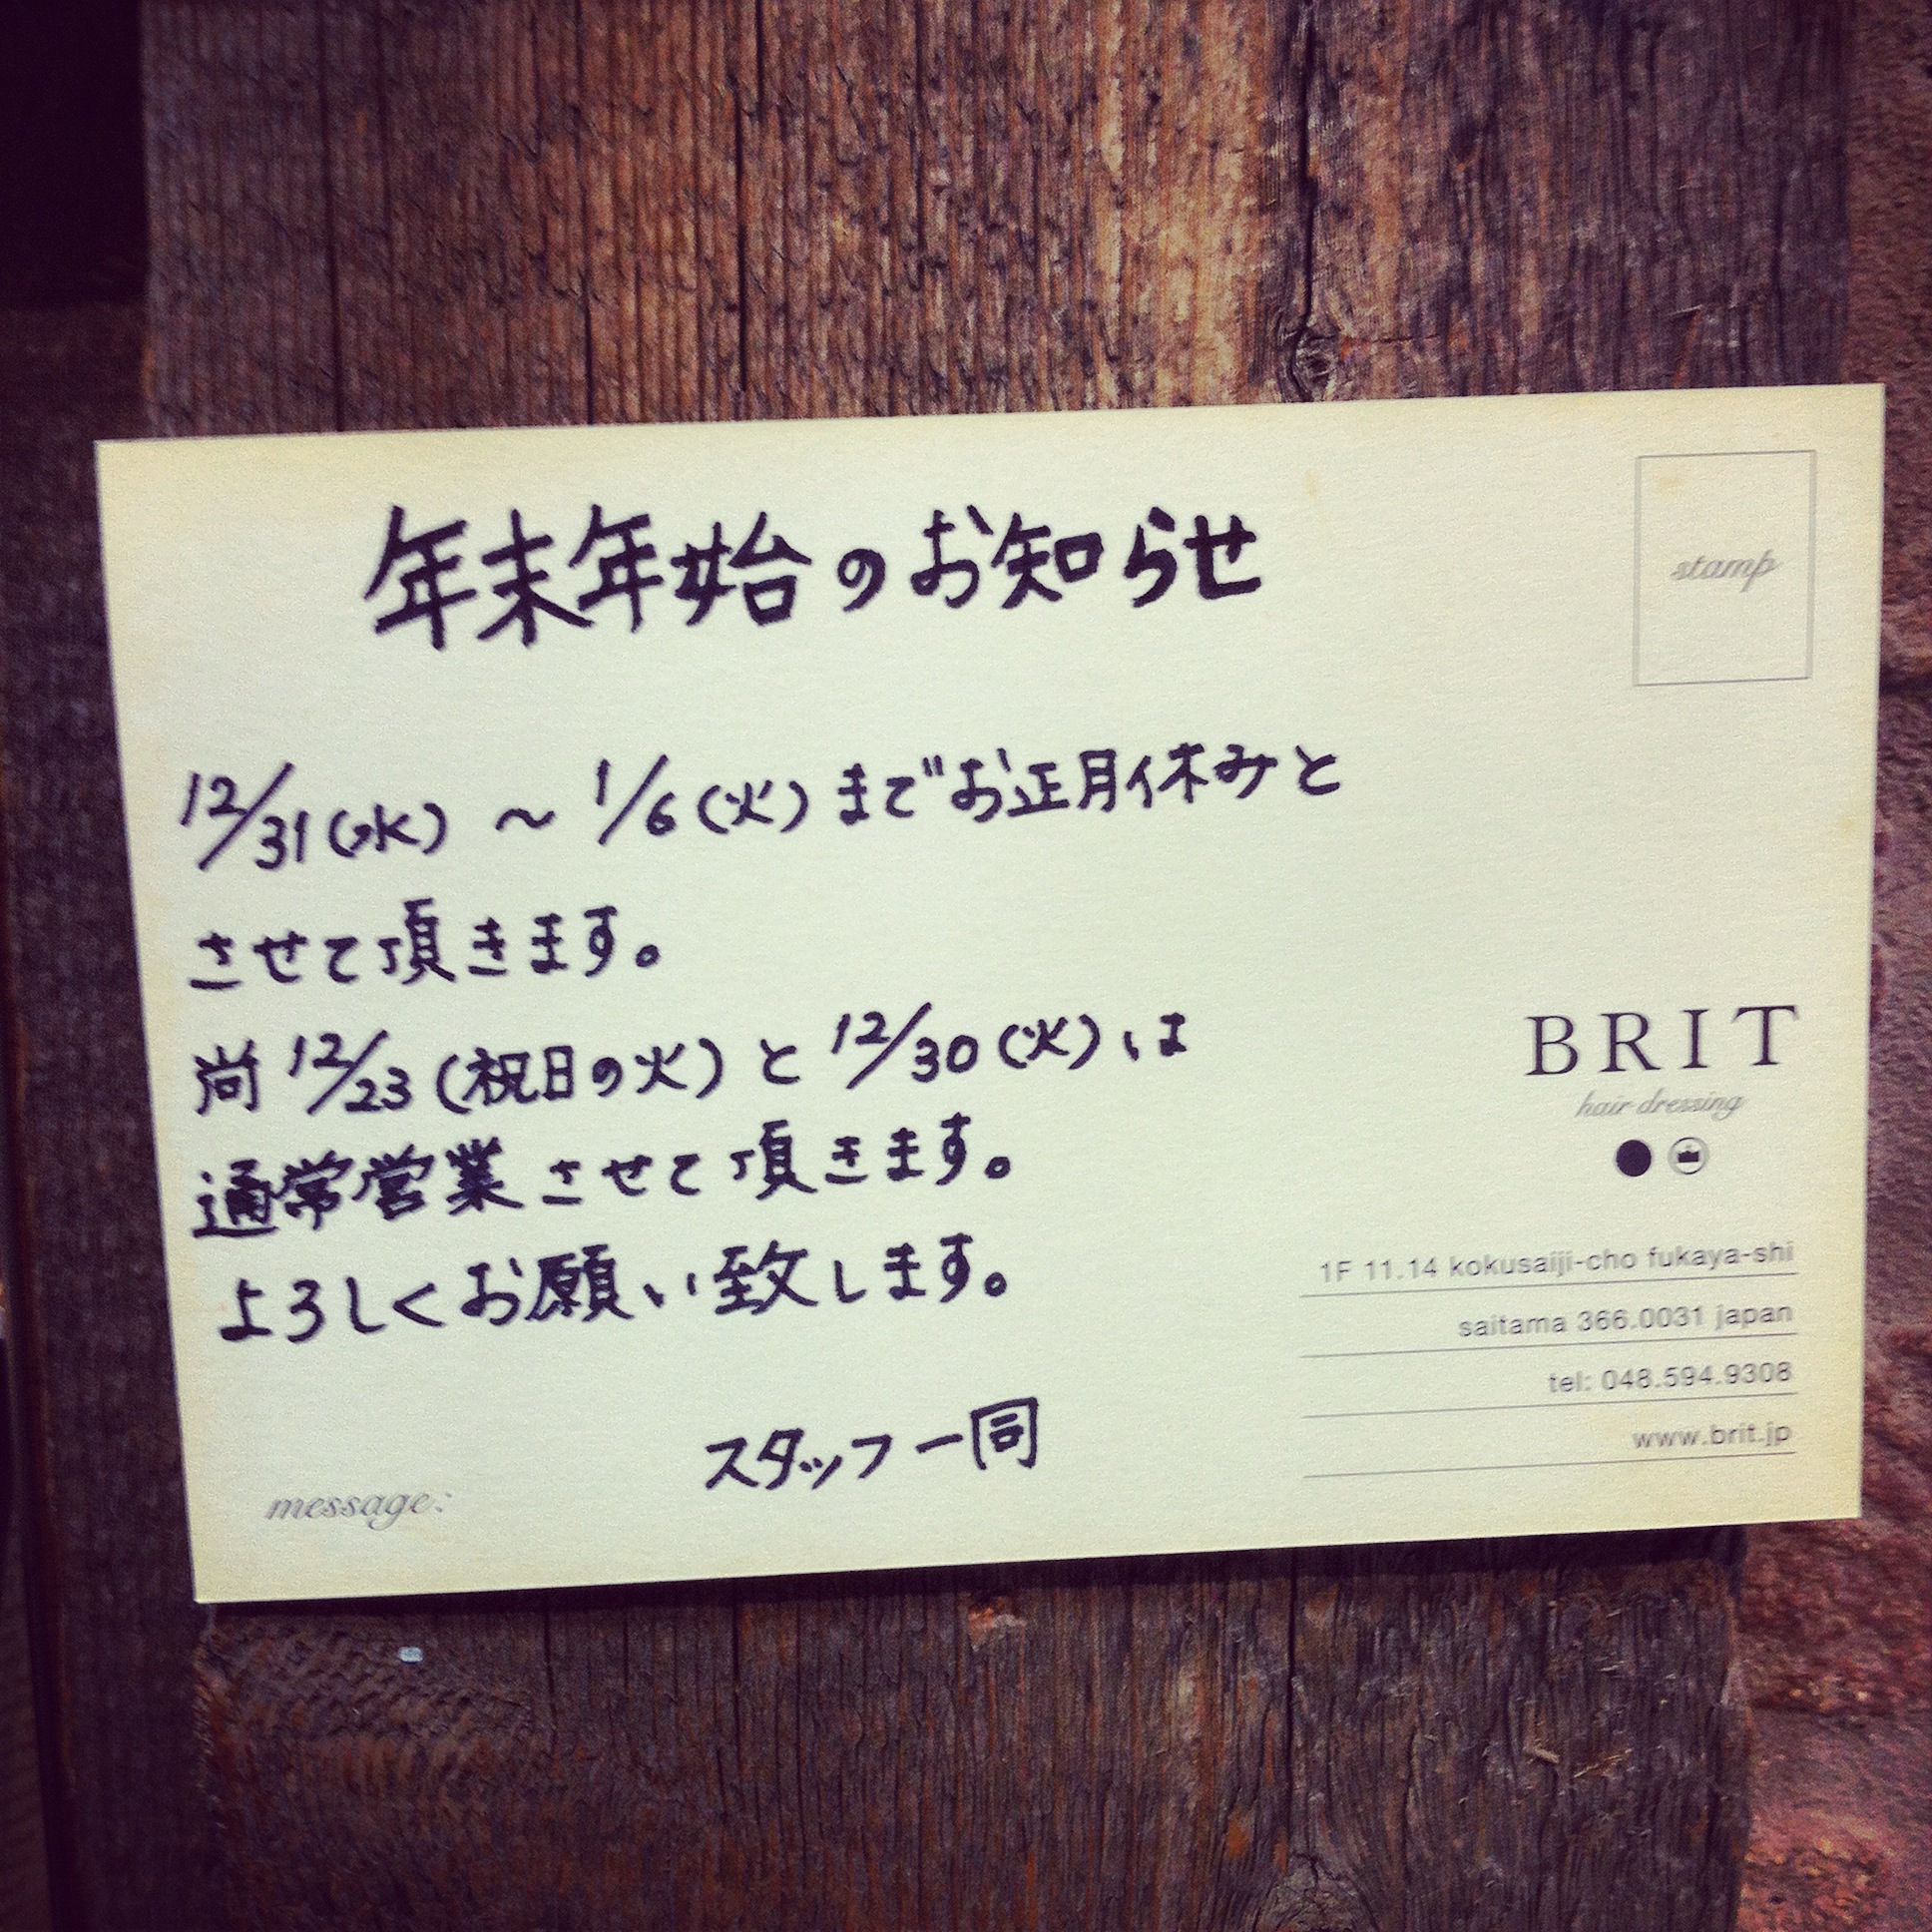 年末年始のお知らせ
stamp
12/31(水) ～ 1/6(火)までお正月休みと
させて頂きます。
尚 12/23(祝日の火)と12/30(火)は
通常営業させて頂きます。
よろしくお願い致します。
スタッフ一同
message:
BRIT
hair dressing
1F 11.14 kokusaiji-cho fukaya-shi
saitama 366.0031 japan
tel: 048.594.9308
www.brit.jp